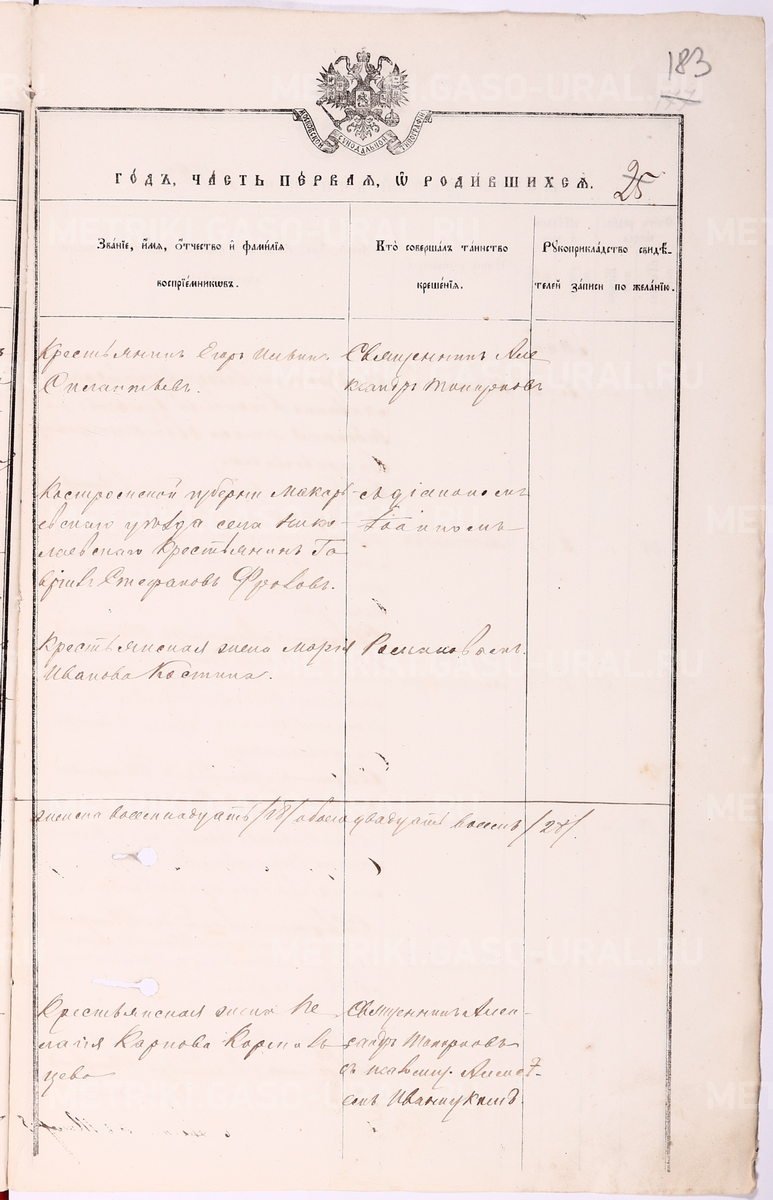 183
МОСКОВСКОЙ СѴНОДАЛЬНОЙ ТИПОГРАФІИ
ГО́ДЪ, ЧА́СТЬ ПЕ́РВАЯ, Ѡ҆ РОДИ́ВШИХСѦ.
25
Зва́нїе, и҆́мя, ѻ҆́тчество и҆ фами́лїя
воспрїе́мникѡвъ.
Кто̀ соверша́лъ та́инство
креще́нїя.
Рꙋкоприкла́дство свидѣ́-
телей за́писи по жела́нїю.
Крестьянинъ Егоръ
Священникъ Але
ксандръ Топорковъ
Костромской губерніи Макарь-
евскаго уѣзда села Нико-
лаевскаго Крестьянинъ Га
вріилъ Стефановъ Фроловъ.
съ діакономъ
Іоанномъ
Крестьянская жена Марія
Иванова Костина.
Романовымъ.
женска восемнадцать /18/ обоего двадцать восемь /28/.
Крестьянская жена Пе
лагія Карпова
Священникъ Алек-
сандръ Топорковъ
съ псаломщ. Алексѣ-
емъ
METRIKI.GASO-URAL.RU